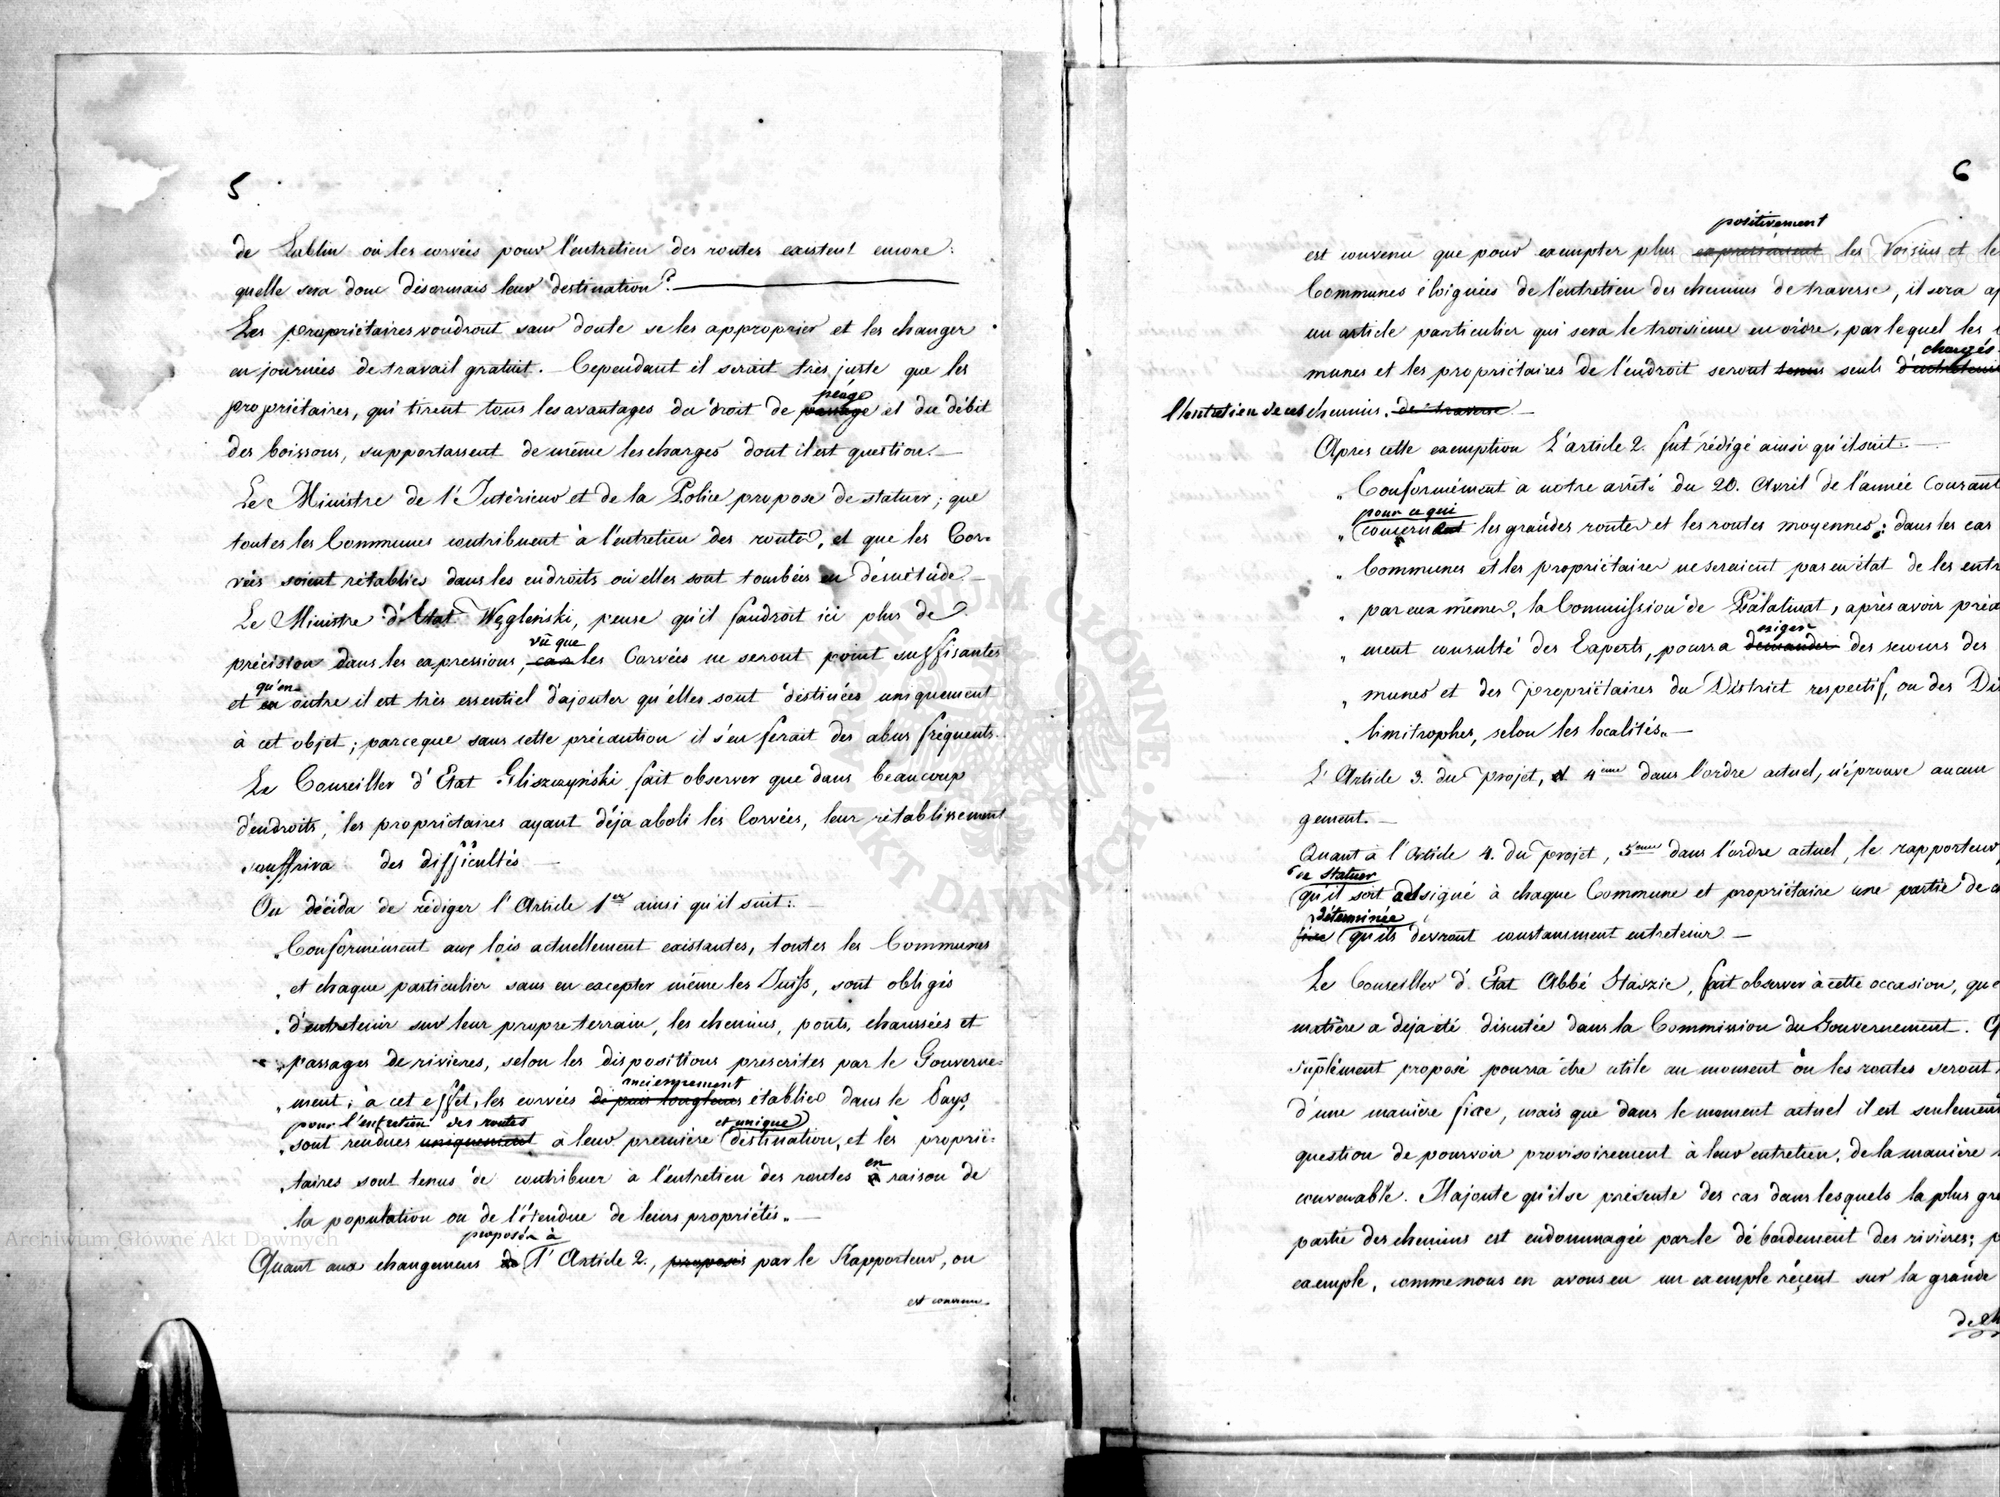 5
de Lublin où les corvées pour l'entretien des routes existent encore:
quelle sera donc désormais leur destination?
Les propriétaires voudront sans doute se les approprier et les changer
en journées de travail gratuit. — Cependant il serait très juste que les
péage
propriétaires, qui tirent tous les avantages du droit de passage et du débit
des boissons, supportassent de même les charges dont il est question. —
Le Ministre de l'Intérieur et de la Police propose de statuer; que
toutes les Communes contribuent à l'entretien des routes, et que les Cor-
vées soient rétablies dans les endroits où elles sont tombées en désuétude. —
Le Ministre d'Etat Węgleński, pense qu'il faudroit ici plus de
vû que
précision dans les expressions, car les Corvées ne seront point suffisantes
qu'en
et en outre il est très essentiel d'ajouter qu'elles sont destinées uniquement
à cet objet; parceque sans cette précaution il s'en ferait des abus fréquents.
Le Conseiller d'Etat Gliszczyński fait observer que dans beaucoup
d'endroits, les propriétaires ayant déja aboli les Corvées, leur rétablissement
souffrira des difficultés —
On décida de rédiger l'Article 1er ainsi qu'il suit: —
„Conformément aux lois actuellement existantes, toutes les Communes
„et chaque particulier sans en excepter même les Juifs, sont obligés
„d'entretenir sur leur propre terrain, les chemins, ponts, chaussées et
„passages de rivières, selon les dispositions prescrites par le Gouverne-
anciennement
„ment; à cet effet, les corvées depuis longtems établies dans le Pays,
pour l'entretien des routes
et unique
„sont rendues uniquement à leur première destination, et les proprié-
en
„taires sont tenus de contribuer à l'entretien des routes à raison de
„la population ou de l'étendue de leurs propriétés. —
proposés à
Quant aux changemens de l'Article 2., proposés par le Rapporteur, on
est convenu
6
positivement
est convenu que pour exempter plus expressément les Voisins et le
Communes éloignées de l'entretien des chemins de traverse, il sera a
un article particulier qui sera le troisième en ordre, par lequel les
chargés
munes et les propriétaires de l'endroit seront tenus seuls d'entretenir
l'entretien de ces chemins. de traverse —
Après cette exemption L'article 2. fut rédigé ainsi qu'il suit. —
„Conformément à notre arrêté du 20. Avril de l'année Courant
pour ce qui
„concernant les grandes routes et les routes moyennes: dans les cas
„Communes et les propriétaires ne seraient pas en état de les entr
„par eux mêmes, la Commission de Palatinat, après avoir préa
exiger
„ment consulté des Experts, pourra demander des secours des
„munes et des propriétaires du District respectif, ou des Di
„limitrophes, selon les localités„ —
L'Article 3. du projet, et 4ème dans l'ordre actuel, n'éprouve aucun
gement. —
Quant à l'Article 4. du projet, 5ème dans l'ordre actuel, le rapporteur
de statuer
qu'il soit assigné à chaque Commune et propriétaire une partie de
déterminée
fixe qu'ils devront constamment entretenir —
Le Conseiller d'Etat Abbé Staszic, fait observer à cette occasion, que
matière a déja été discutée dans la Commission du Gouvernement.
suplément proposé pourra être utile au moment où les routes seront
d'une manière fixe, mais que dans le moment actuel il est seulement
question de pourvoir provisoirement à leur entretien, de la manière
convenable. Il ajoute qu'il se présente des cas dans lesquels la plus gra
partie des chemins est endommagée par le débordement des rivières; p
exemple, comme nous en avons eu un exemple réçent sur la grande